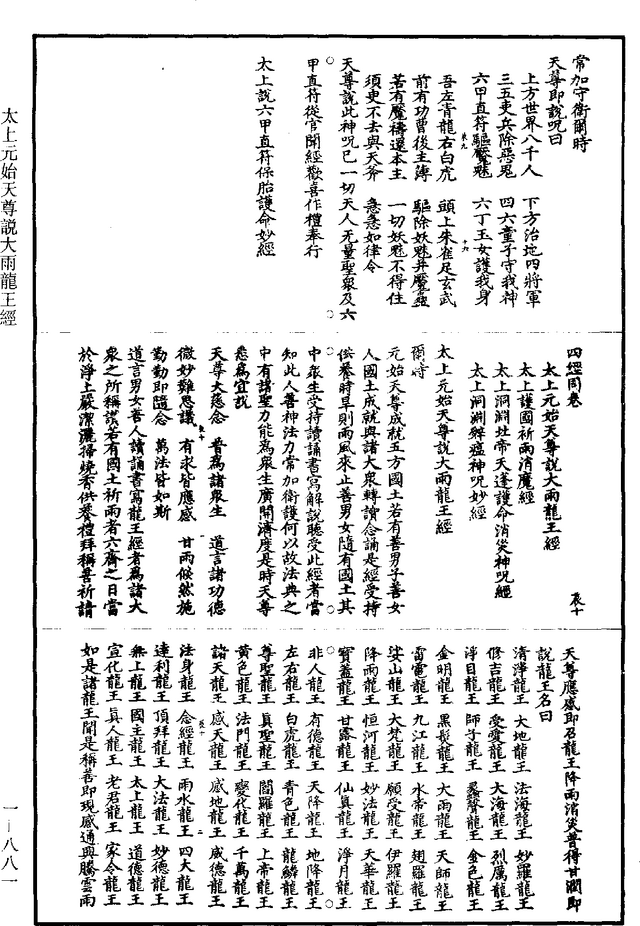 太上元始天尊説大雨龍王經
一-八八一
常加守衛爾時
天尊即說呪曰
上方世界八千人 下方治地四將軍
三五吏兵除惡鬼 四六童子守我神
六甲直符驅魘魅 六丁玉女護我身
吾左青龍右白虎 頭上朱雀足玄武
前有功曹後主簿 驅除妖魅并魘蠱
若有魘禱還本主 一切妖魅不得住
須臾不去與天斧 急急如律令
天尊說此神呪已一切天人无量聖衆及六
甲直符從官聞經歡喜作禮奉行
太上說六甲直符保胎護命妙經
四經同卷
太上元始天尊說大雨龍王經
太上護國祈雨消魔經
太上洞淵北帝天蓬護命消災神呪經
太上洞淵辭瘟神呪妙經
辰十
太上元始天尊說大雨龍王經
爾時
元始天尊成就五方國土若有善男子善女
人國土成就與諸大衆轉讀念誦是經受持
供養時早則雨風來止善男女隨有國土其
中衆生受持讀誦書寫解說聽受此經者當
知此人善神法力常加衛護何以故法典之
中有諸聖力能為衆生廣開濟度是時天尊
悉為宣說
天尊大慈念 普為諸衆生 道言諸功德
微妙難思議 有求皆應感 甘雨候然施
勤勤即隨念 萬法皆如斯
道言男女善人讀誦書寫龍王經者為諸大
衆之所稱讚若有國土祈雨者六齋之日當
於淨土嚴潔灑掃燒香供養禮拜稱善祈請
天尊應感即召龍王降雨消災普得甘潤即
說龍王名曰
清淨龍王 大地龍王 法海龍王 妙羅龍王
修吉龍王 受愛龍王 大海龍王 烈厲龍王
淨目龍王 師子龍王 聲龍王 金色龍王
金明龍王 黑髮龍王 大雨龍王 天師龍王
雷電龍王 九江龍王 水帝龍王 翅羅龍王
娑山龍王 大梵龍王 願受龍王 伊羅龍王
降雨龍王 恒河龍王 妙法龍王 天華龍王
寶蓋龍王 甘露龍王 仙真龍王 淨月龍王
非人龍王 有德龍王 天降龍王 地降龍王
左右龍王 白虎龍王 青色龍王 龍鱗龍王
尊聖龍王 真聖龍王 閻羅龍王 上帝龍王
黃色龍王 法門龍王 變化龍王 千萬龍王
諸天龍王 感天龍王 感地龍王 感德龍王
法身龍王 念經龍王 雨水龍王 四大龍王
達利龍王 頂拜龍王 大法龍王 妙德龍王
無上龍王 國主龍王 太上龍王 道德龍王
宣化龍王 真人龍王 老君龍王 家令龍王
如是諸龍王聞是稱善即現感通興騰雲雨